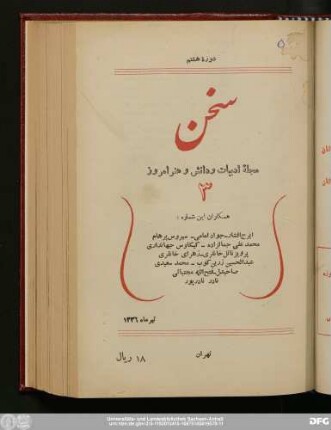 دورهٔ هشتم
سخن
مجلهٔ ادبیات و دانش و هنر امروز
۳
همکاران این شماره:
ایرج افشار - جواد امامی - سیروس پرهام
محمد علی جمالزاده - کیکاوس جهانداری
پرویز ناتل خانلری - زهرای خانلری
عبدالحسین زرین کوب - محمد سعیدی
صاحبدل - فتح‌الله مجتبائی
نادر نادرپور
تیر ماه ۱۳۳۶
تهران
۱۸ ریال
Universitäts- und Landesbibliothek Sachsen-Anhalt
DFG